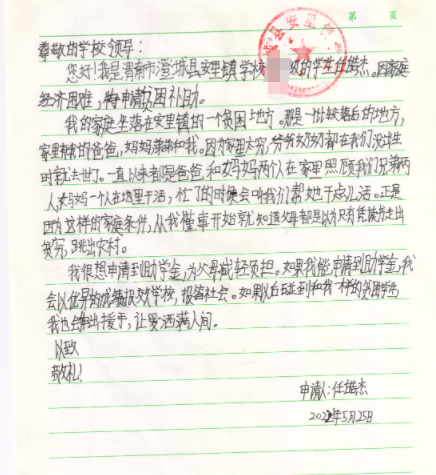 第 页
尊敬的学校领导：
您好！我是渭南市澄城县安里镇学校 级的学生任 杰，因家庭
经济困难，特申请贫困补助。
我的家庭坐落在安里镇的一个贫困地方。那是一个比较落后的地方，
家里有我的爸爸，妈妈，弟弟和我。因为家里太穷，爷爷奶奶都在我们没出生
时就去世了。一直以来都是爸爸，和妈妈两个人在家里照顾我们兄弟两
人，妈妈一个人在地里干活，忙了的时候会叫我们帮她干点儿活。正是
因为这样的家庭条件，从我懂事开始就知道 只有凭读书走出
贫穷，跳出农村。
我很想申请到助学金，为父母减轻负担。如果我能申请到助学金，我
会以优异的成绩报效学校，报答社会。如果以后碰到和我一样的贫困学生
我也会伸出援手，让爱洒满人间。
以致
敬礼！
申请人：任 杰
2022年5月25日